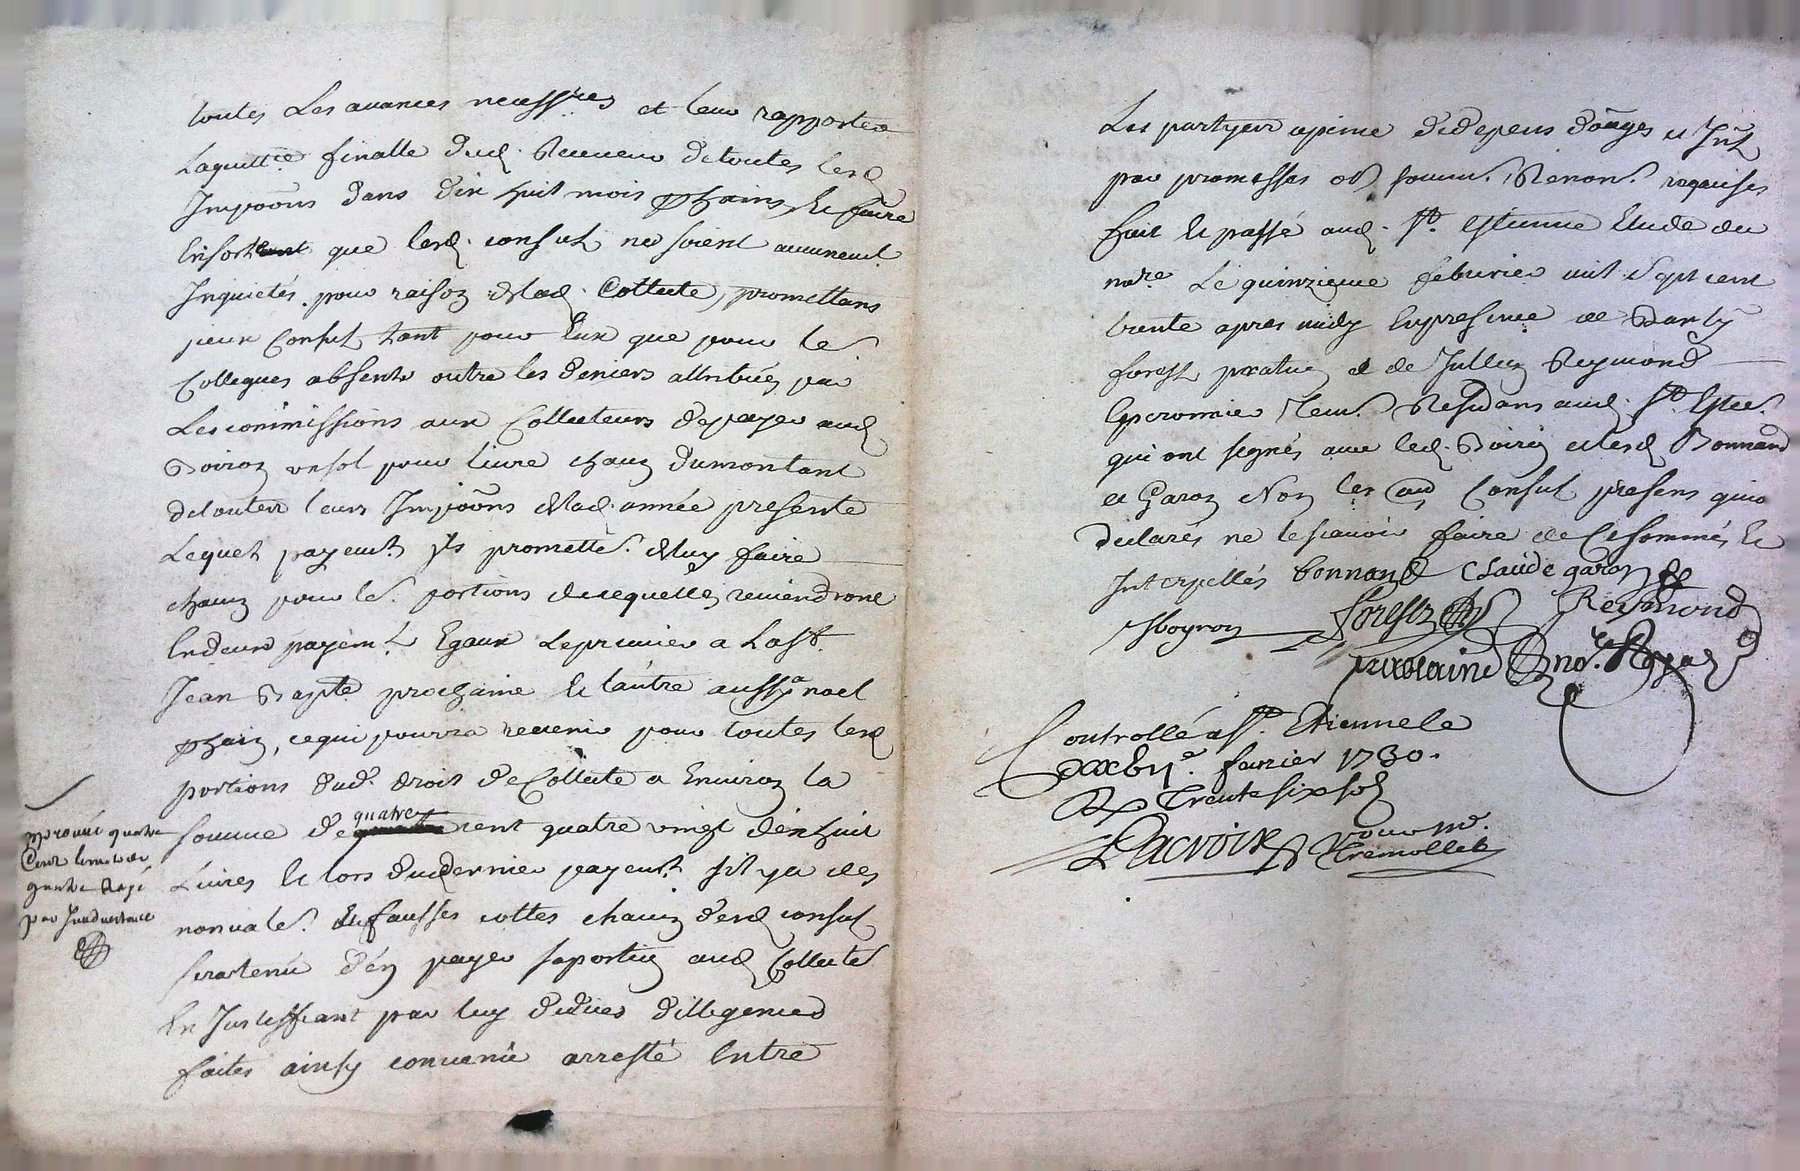 toutes Les auances necessres et leur rapporter
Laquittce finalle dud. Receueur detoutes lesd
Imposons dans dix huit mois pchains Et faire
Ensorte que lesd. consuls ne soient aucunemt
Inquietés pour raison delad. Collecte, promettans
yceux Consuls tant pour Eux que pour le.
Collegues absents outre les deniers attribués par
Les commissions aux Collecteurs depayer aud
Boiron un sol pour Liure chaun dumontant
detoutes leurs Imposons delad. année presente
Lequel payemt ils promette. deluy faire
chaun pour le. portions desquelles reuiendront
En deux payemts Egaux Lepremier a La st.
Jean Bapte prochaine Et l'autre aussy a noel
pchain, cequi pourra reuenir pour toutes lesd
portions dud. droit de Collecte a Enuiron la
somme de quatre cent quatre vingt dix huit
Liures Et lors dud dernier payemt. sil y a des
nonuale. Et fausses cottes chaun desd consuls
sera tenu d'en payer sa portion aud Collecte
En Justiffiant par luy dedues dilligences
faites ainsy conuenu arresté Entre
approuué quatre
Cent le mot de
quatre Rayé
par Inaduertance
Les partyes apeine dedepens domages et Intz
par promesses obs soumi. Renon. requises
fait Et passé aud. St. Estienne Etude du
nore Le quinzieme feburier mil sept cent
trente apres midy En presence de Barthy
forest praticien et de Jullien Reymond
Eperonnier tem. Residans aud. St. Este.
qui ont signés auec led. Boiron et lesd Bonnand
et Garon Non les autres Consuls presens qui o
declarés ne le scauoir faire de Ce sommés Et
Interpellés bonnand Claude garon
Boyron forest Reymond
nore Royal
Controllé a St. Etienne le
feurier 1730.
R trente six sols
Lacroix pour mr.
Tremollet